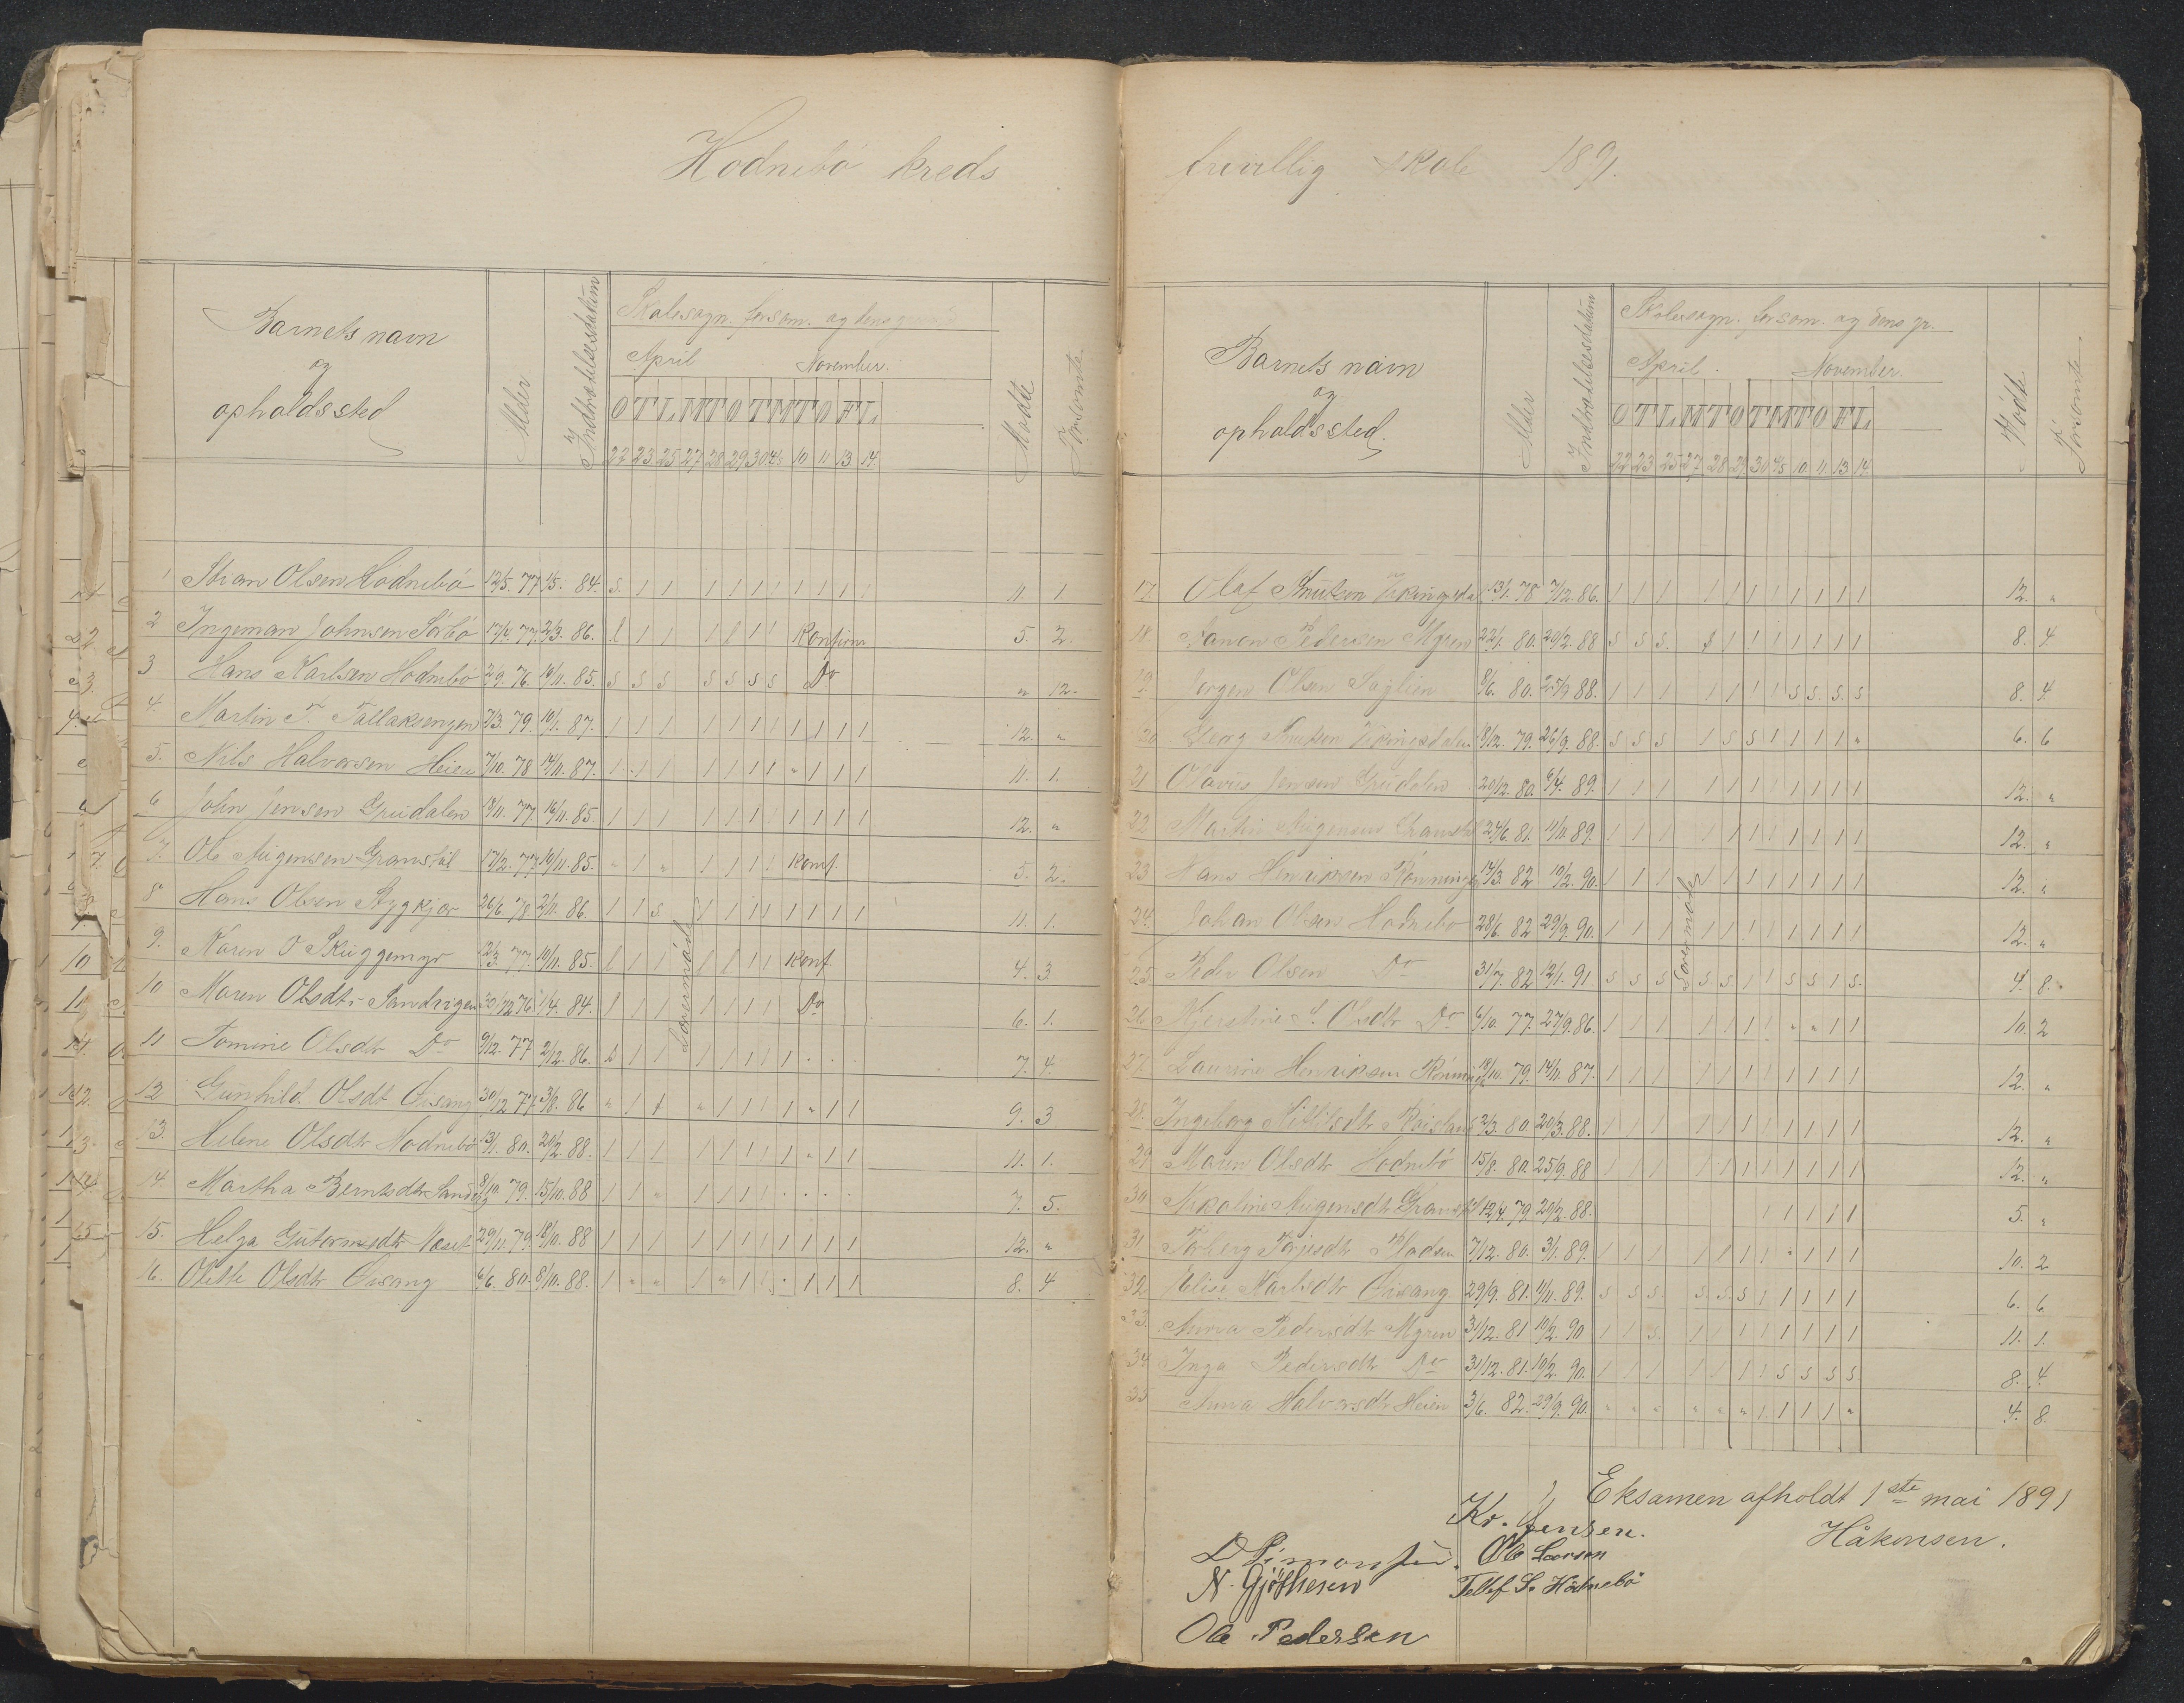 Hodnebö kreds
Barnets navn
og
opholdssted
Alder
Indtrædelsesdatum
Skolesøgn. forsøm. og dens
April November.
O T L M T O T M T O F L
22 23 25 27 28 29 30 4/5 10 11 13 14
Mødte
Forsømte
1 Stian Olsen Hödnebö 12/5. 77 1/5. 84. s. 1 1 1 1 1 1 1 1 1 1 1 11. 1.
2 Ingeman Johnsen Sörbö 17/4. 77. 2/3. 86. 1 1 1 1 1 1 1 Konfirm 5. 2.
3 Hans Karlsen Hodnebö 2/9. 76. 10/11. 85. s s s s s s s Do " 12.
4. Martin T. Tallaksengen 7/3. 79. 10/1. 87. 1 1 1 1 1 1 1 1 1 1 1 12. "
5. Nils Halvorsen Heien 7/10. 78 14/11. 87. 1 1 1 1 1 1 1 " 1 1 1 11. 1.
6 John Jensen Grudalen 18/11. 77. 16/11. 85. 1 1 1 1 1 1 1 1 1 1 1 12. "
7. Ole Augensen Granstöl 17/2. 77. 10/11. 85. " 1 " 1 1 1 1 Konf. 5. 2.
8 Hans Olsen Bygkjær 26/6. 78. 2/11. 86. 1 1 s 1 1 1 1 1 1 1 1 11. 1.
9. Karen O Skuggemyr 12/3. 77. 10/11. 85. 1 1 1 1 1 1 1 Konf. 4. 3
10 Maren Olsdtr Sandvigen 30/12 76 1/4. 84. 1 1 1 1 1 1 1 Do 6. 1.
11 Tomine Olsdtr Do 9/12. 77 2/12. 86. s 1 1 1 1 1 1 1 . . . 7. 4.
12 Gunhild Olsdt Öisang 30/12 77. 3/8. 86 " 1 1 " 1 1 1 1 " 1 1 9. 3
13. Helene Olsdtr Hodnebö 13/1. 80. 20/2. 88. 1 1 1 1 1 1 1 1 " 1 1 11. 1.
14. Martha Berntsdtr Sandvig 8/10. 79. 15/10. 88 1 1 " 1 1 1 1 . . . . 7. 5.
15. Helga Gutormsdtr Neset 29/11. 79. 18/10. 88 1 1 1 1 1 1 1 1 1 1 1 12. "
16. Olette Olsdtr Öisang 6/6. 80. 8/10. 88. 1 " " 1 " 1 1 . 1 1 1 8. 4
Lærermöde
frivillig skole 1891.
Barnets navn
og
opholdssted.
Alder
Indtrædelsesdatum
Skolesøgn. forsom. og dens gr.
April. November.
O T L M T O T M T O F L
22 23 25 27 28 29 30 4/5 10 11 13 14
Mödte.
Forsömte
17. Olaf Knutsen Vikingsdal 13/1. 78 7/12. 86. 1 1 1 1 1 1 1 1 1 1 1 12. "
18. Pedersen Myren 22/1. 80. 20/2. 88 s s s. 1 1 1 1 1 1 1 1 8. 4
19 Jörgen Olsen 8/6. 80. 25/9 88. 1 1 1 1 1 1 1 s s. s. s 8. 4
20 Georg Knutsen Vikingsdalen 18/12. 79. 26/9. 88. s s s 1 s s 1 1 1 1 " 6. 6
21 Olavus Jensen Grudalen 20/12. 80. 6/4. 89. 1 1 1 1 1 1 1 1 1 1 1 12. "
22 Martin Augensen Granstöl 24/6. 81. 11/11. 89. 1 1 1 1 1 1 1 1 1 1 1 12. "
23 Hans Henriksen Rönningen 14/3. 82 10/2. 90. 1 1 1 1 1 1 1 1 1 1 1 12. "
24. Johan Olsen Hodnebo 28/6. 82 29/9. 90. 1 1 1 1 1 1 1 1 1 1 1 12. "
25. Peder Olsen Do 31/7. 82 12/1. 91 s s s s s. 1 1 s s 1 s. 4. 8.
26. Kjerstine S. Olsdtr Do 6/10. 77. 27/9. 86. 1 1 1 1 1 1 1 " " 1 1 10. 2
27. Laurine Henriksen Rönningen 18/10. 79. 14/11. 87. 1 1 1 1 1 1 1 1 1 1 1 12. "
28. Ingeborg Kittilsdtr Röisland 2/3. 80 20/3. 88. 1 1 1 1 1 1 1 1 1 1 1 12. "
29. Maren Olsdtr Hodnebö 15/8. 80. 25/9. 88 1 1 1 1 1 1 1 1 1 1 1 12. "
30. Nikoline Augensdtr Granstöl 12/4 79 20/2. 88. 1 1 1 1 1 5. "
31. Torberg Torjusdtr Pladsen 7/12. 80. 3/1. 89. 1 1 1 1 1 1 1 " 1 1 1 10. 2
32. Elise Karlsdtr Öisang 29/9. 81. 11/11. 89. s s s. s. s. s 1 1 1 1 1 6. 6.
33. Anna Pedersdtr Myren 31/12. 81 10/2. 90 1 1 s. 1 1 1 1 1 1 1 1 11. 1.
34 Inga Pedersdtr Do 31/12. 81. 10/2. 90. 1 1 1 1 1 1 1 s s s s. 8. 4.
35 Anna Halvorsdtr Heien 3/6. 82. 29/9. 90. " " " " " " 1 1 1 1 " 4. 8.
Lærermöde
Eksamen afholdt 1ste mai 1891
Kr. Jensen.
Håkensen.
D Simonsen. Ole Larsen
N. Gjöthesen Tellef S. Hödnebö
Ole Pedersen